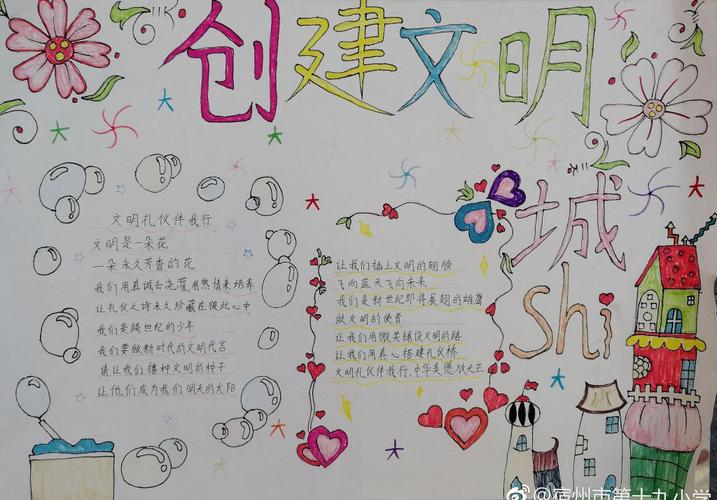 创建文明
城
shi
文明礼仪伴我行
文明是一朵花
一朵永久芳香的花
我们用真诚去浇灌用热情来培养
让礼仪之诗永久珍藏在彼此心中
我们是跨世纪的少年
我们要做新时代的文明代言
请让我们播种文明的种子
让他们成为我们明天的太阳
让我们插上文明的翅膀
飞向蓝天飞向未来
我们是新世纪即将展翅的雄鹰
做文明的使者
让我们用微笑铺设文明的路
让我们用真心搭建礼仪桥
文明礼仪伴我行,中华美德放光芒
@宿州市第十九小学